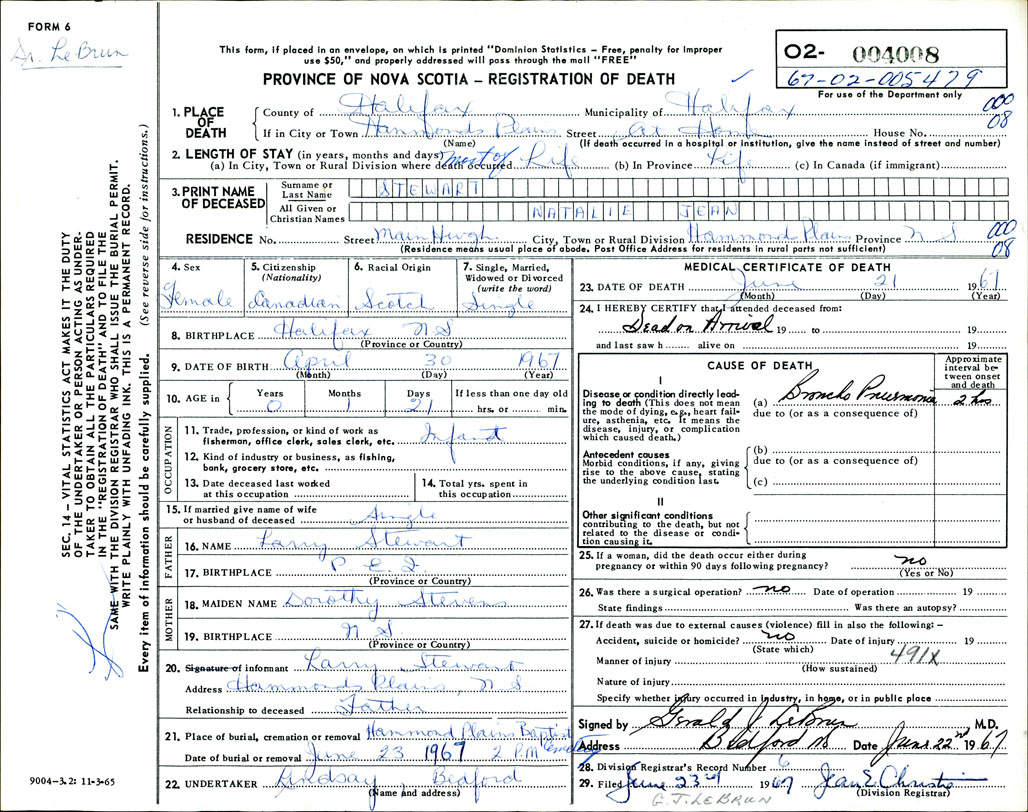 FORM 6
Dr. LeBrun
This form, if placed in an envelope, on which is printed "Dominion Statistics – Free, penalty for improper
use $50," and properly addressed will pass through the mail "FREE"
PROVINCE OF NOVA SCOTIA – REGISTRATION OF DEATH
O2- 004008
67-02-005479
For use of the Department only
1. PLACE OF DEATH County of Halifax Municipality of Halifax 000
If in City or Town Hammonds Plains Street At Home House No. 08
(Name) (If death occurred in a hospital or institution, give the name instead of street and number)
2. LENGTH OF STAY (in years, months and days)
(a) In City, Town or Rural Division where death occurred most of Life (b) In Province Life (c) In Canada (if immigrant)
3. PRINT NAME OF DECEASED Surname or Last Name STEWART
All Given or Christian Names NATALIE JEAN
RESIDENCE No. Street Main High City, Town or Rural Division Hammond Plains Province N S 000
(Residence means usual place of abode. Post Office Address for residents in rural parts not sufficient) 08
4. Sex 5. Citizenship (Nationality) 6. Racial Origin 7. Single, Married, Widowed or Divorced (write the word)
Female Canadian Scotch Single
8. BIRTHPLACE Halifax N S
(Province or Country)
9. DATE OF BIRTH April 30 1967
(Month) (Day) (Year)
10. AGE in Years Months Days If less than one day old
0 1 21 hrs. or min.
OCCUPATION
11. Trade, profession, or kind of work as fisherman, office clerk, sales clerk, etc. Infant
12. Kind of industry or business, as fishing, bank, grocery store, etc.
13. Date deceased last worked at this occupation
14. Total yrs. spent in this occupation
15. If married give name of wife or husband of deceased Single
FATHER
16. NAME Larry Stewart
17. BIRTHPLACE P. E. I.
(Province or Country)
MOTHER
18. MAIDEN NAME Dorothy Stevens
19. BIRTHPLACE N S
(Province or Country)
20. Signature of informant Larry Stewart
Address Hammonds Plains, N S
Relationship to deceased Father
21. Place of burial, cremation or removal Hammond Plains Baptist Cemetery
Date of burial or removal June 23 1967 2 P.M
22. UNDERTAKER Lindsay Bedford
(Name and address)
MEDICAL CERTIFICATE OF DEATH
23. DATE OF DEATH June 21 1967
(Month) (Day) (Year)
24. I HEREBY CERTIFY that I attended deceased from:
Dead on Arrival 19 to 19
and last saw h alive on 19
CAUSE OF DEATH
Approximate interval between onset and death
I
Disease or condition directly leading to death (This does not mean the mode of dying, e.g., heart failure, asthenia, etc. It means the disease, injury, or complication which caused death.)
(a) Broncho Pneumonia 2 hrs
due to (or as a consequence of)
Antecedent causes
Morbid conditions, if any, giving rise to the above cause, stating the underlying condition last.
(b)
due to (or as a consequence of)
(c)
II
Other significant conditions
contributing to the death, but not related to the disease or condition causing it.
25. If a woman, did the death occur either during pregnancy or within 90 days following pregnancy? no
(Yes or No)
26. Was there a surgical operation? no Date of operation 19
State findings Was there an autopsy?
27. If death was due to external causes (violence) fill in also the following: –
Accident, suicide or homicide? no Date of injury 19
(State which) 491X
Manner of injury
(How sustained)
Nature of injury
Specify whether injury occurred in industry, in home, or in public place
Signed by Gerald J LeBrun M.D.
Address Bedford NS Date June 22nd 1967
28. Division Registrar's Record Number 6
29. Filed June 23rd 1967 Jean E. Christie
(Division Registrar)
G. J. LEBRUN
SEC. 14 – VITAL STATISTICS ACT MAKES IT THE DUTY
OF THE UNDERTAKER OR PERSON ACTING AS UNDER-
TAKER TO OBTAIN ALL THE PARTICULARS REQUIRED
IN THE "REGISTRATION OF DEATH" AND TO FILE THE
SAME WITH THE DIVISION REGISTRAR WHO SHALL ISSUE THE BURIAL PERMIT.
WRITE PLAINLY WITH UNFADING INK. THIS IS A PERMANENT RECORD.
Every item of information should be carefully supplied. (See reverse side for instructions.)
9004-3.2: 11-3-65